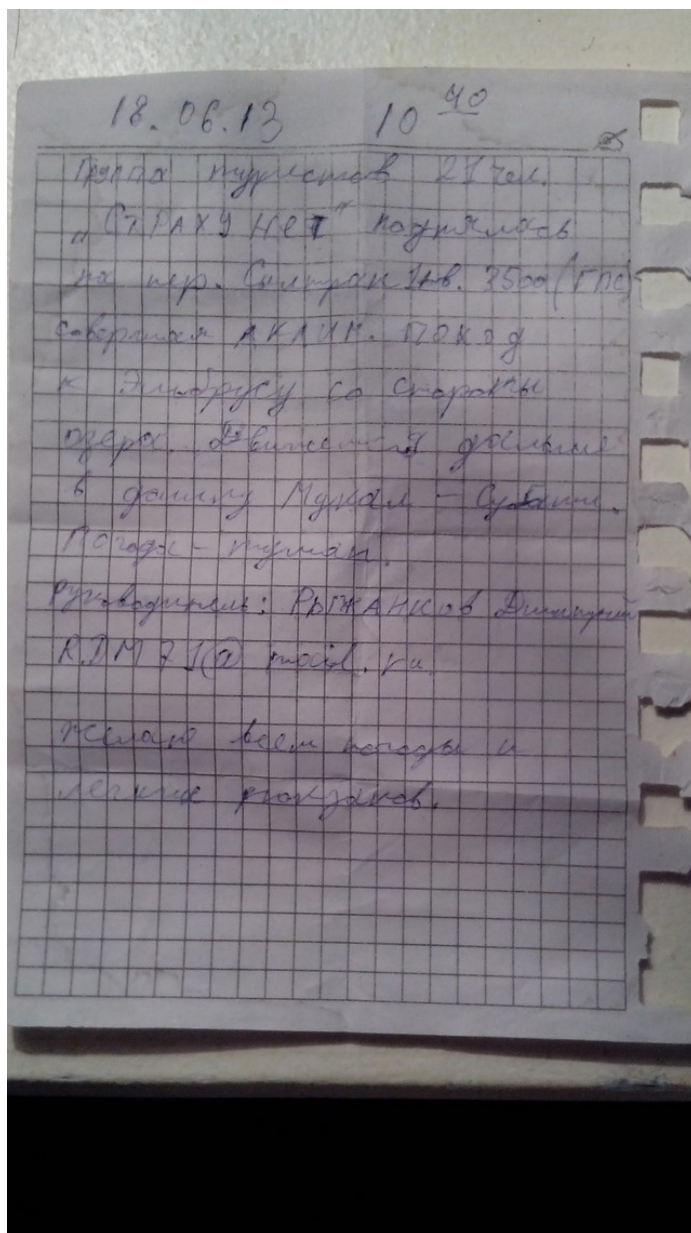 18.06.13 10 40
Группа туристов 21 чел.
„СТРАХУ НЕТ“ поднялась
на пер. Сылтран 1кв. 3500 (ГПС)
совершая АКЛИМ. ПОХОД
к Эльбрусу со стороны
озера. Движемся дальше
в долину Мукал -
Погода - туман.
Руководитель: РЫЖАНКОВ Дмитрий
RDM71@mail.ru
Желаю всем погоды и
легких рюкзаков.